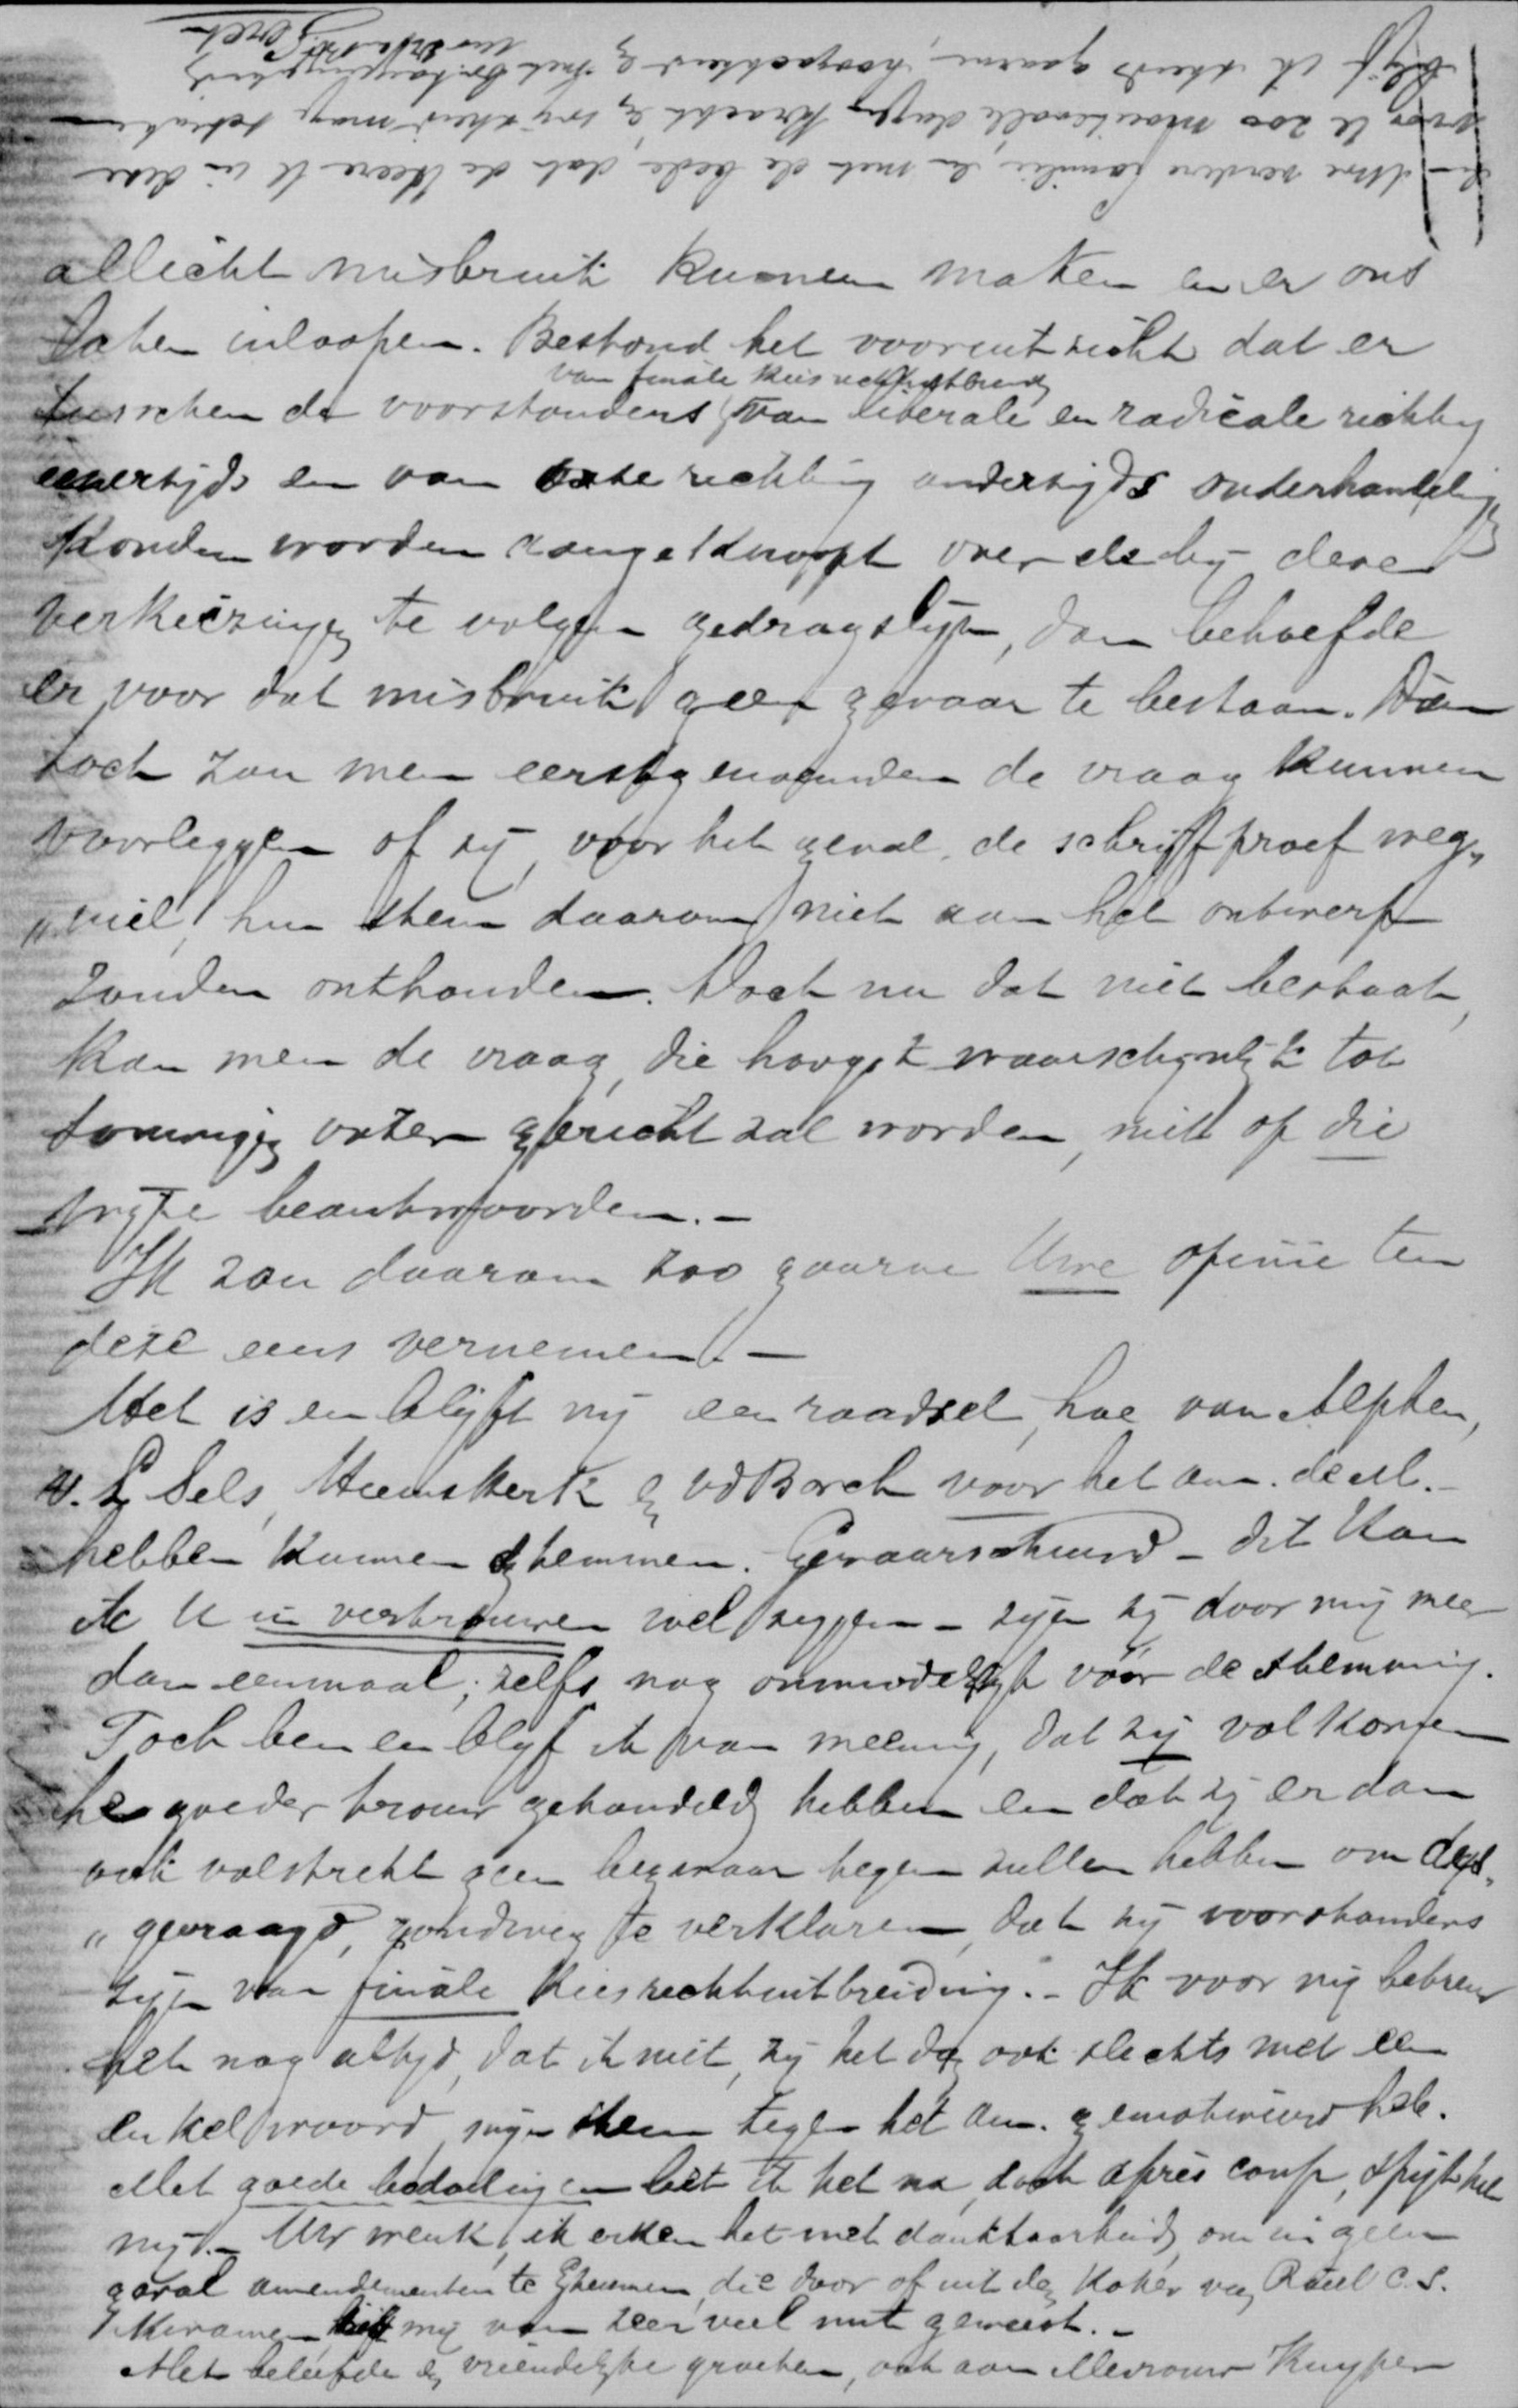 allicht misbruik kunnen maken en er ons
laten inloopen. Bestond het vooruitzicht dat er
van finale kiesrechtuitbreiding
tusschen de voorstanders van liberale en radicale richting
eenerzijds en van onze richting anderzijds onderhandeling
konden worden aangeknoopt over de bij deze
verkiezingen te volgen gedragslijn, dan behoefde
er voor dat misbruik geen gevaar te bestaan. Dan
toch zou men eerstgenoemden de vraag kunnen
voorleggen of zij, voor het geval de schrijfproef weg„
„viel, hun stem daarom niet aan het ontwerp
zouden onthouden. Doch nu dat niet bestaat,
kan men de vraag, die hoogst waarschijnlijk tot
sommigen onzer gericht zal worden, niet op die
wijze beantwoorden. –
Ik zou daarom zoo gaarne Uwe opinie ten
deze eens vernemen. –
Het is en blijft mij een raadsel, hoe van Alphen,
v. L. Sels, Heemskerk en vd Borch voor het am. de M. –
hebben kunnen stemmen. Gewaarschuwd – dit kan
ik U in vertrouwen wel zeggen – zijn zij door mij meer
dan eenmaal; zelfs nog onmiddellijk vóór de stemming.
Toch ben en blijf ik van meening, dat zij volkomen
te goeder trouw gehandeld hebben en dat zij er dan
ook volstrekt geen bezwaar tegen zullen hebben om des„
„gevraagd, rondweg te verklaren, dat zij voorstanders
zijn van finale kiesrechtuitbreiding. – Ik voor mij betreur
het nog altijd, dat ik niet, zij het dan ook slechts met een
enkel woord, mijn stem tegen het am. gemotiveerd heb.
Met goede bedoelingen liet ik het na, doch après coup, spijt het
mij. – Uw wenk, ik erken het met dankbaarheid, om in geen
geval amendementen te steunen, die door of uit den koker van Roëll c.s.
kwamen, is mij van zeer veel nut geweest. –
Met beleefde en vriendelijke groeten, ook aan Mevrouw Kuyper
en Uwe verdere familie en met de bede, dat de Heere U in deze
voor U zoo moeitevolle dagen kracht en wijsheid moge schenken
blijf ik steeds gaarne, hoogachtend en met toegenegenheid